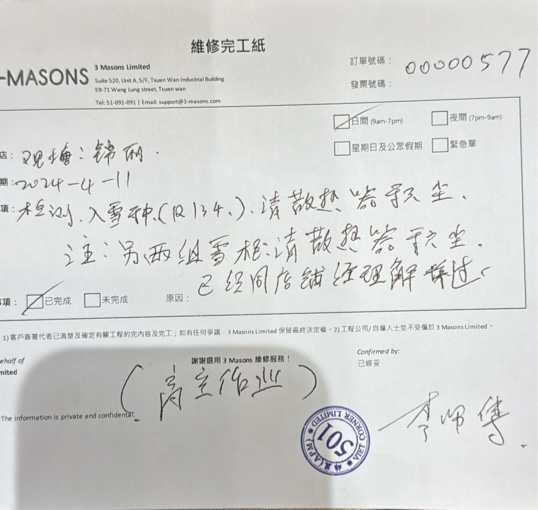 維修完工紙
-MASONS
3 Masons Limited
Suite 520, Unit A, 5/F, Tsuen Wan Industrial Building
59-71 Wang Lung street, Tsuen wan
Tel: 51-091-091 | Email: support@3-masons.com
訂單號碼： 00000577
發票號碼：
日間 (9am-7pm)
夜間 (7pm-9am)
星期日及公眾假期
緊急單
店：觀塘：錦丽.
期：2024-4-11
項：检测.入雪种.(R134.).清散热器灰尘.
注：另两组雪柜.清散热器灰尘.
已经同店铺经理解释过
事項：
已完成
未完成
原因：
1)客戶簽署代表已清楚及確定有關工程的完內容及完工；如有任何爭議，3 Masons Limited 保留最終決定權。2)工程公司/自僱人士並不受僱於 3 Masons Limited。
ehalf of
mited
謝謝選用 3 Masons 維修服務！
Confirmed by:
已修妥
The information is private and confidential.
CORNER LIMITED
501
(APM)
李师傅.